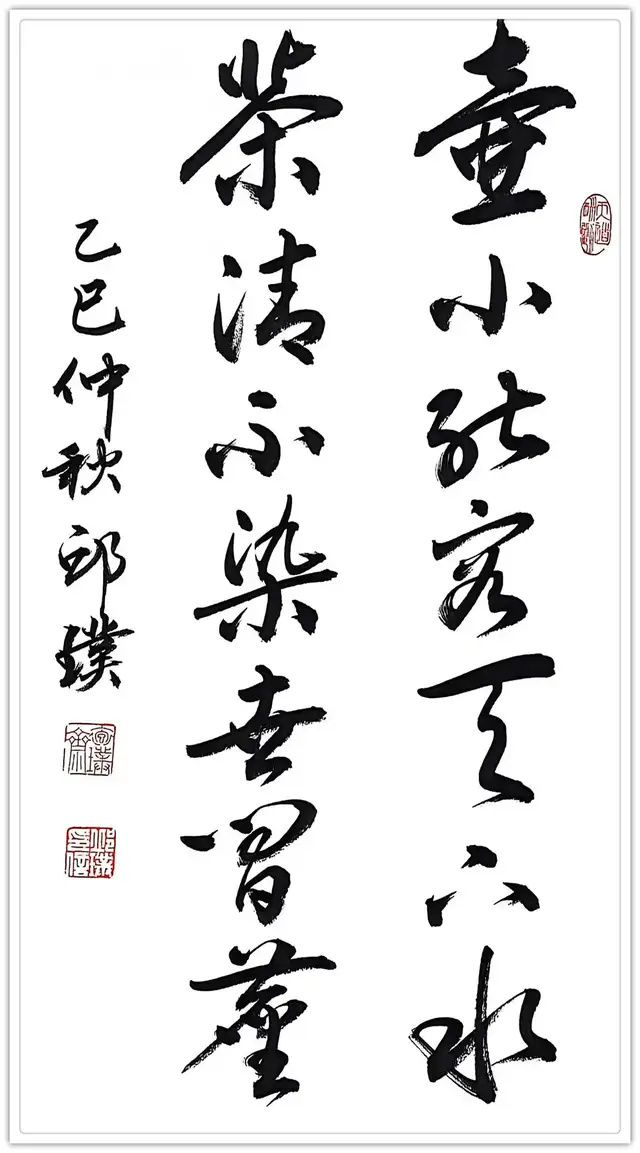 壶小能容天下水
茶清不染世间尘
乙巳仲秋邱璞